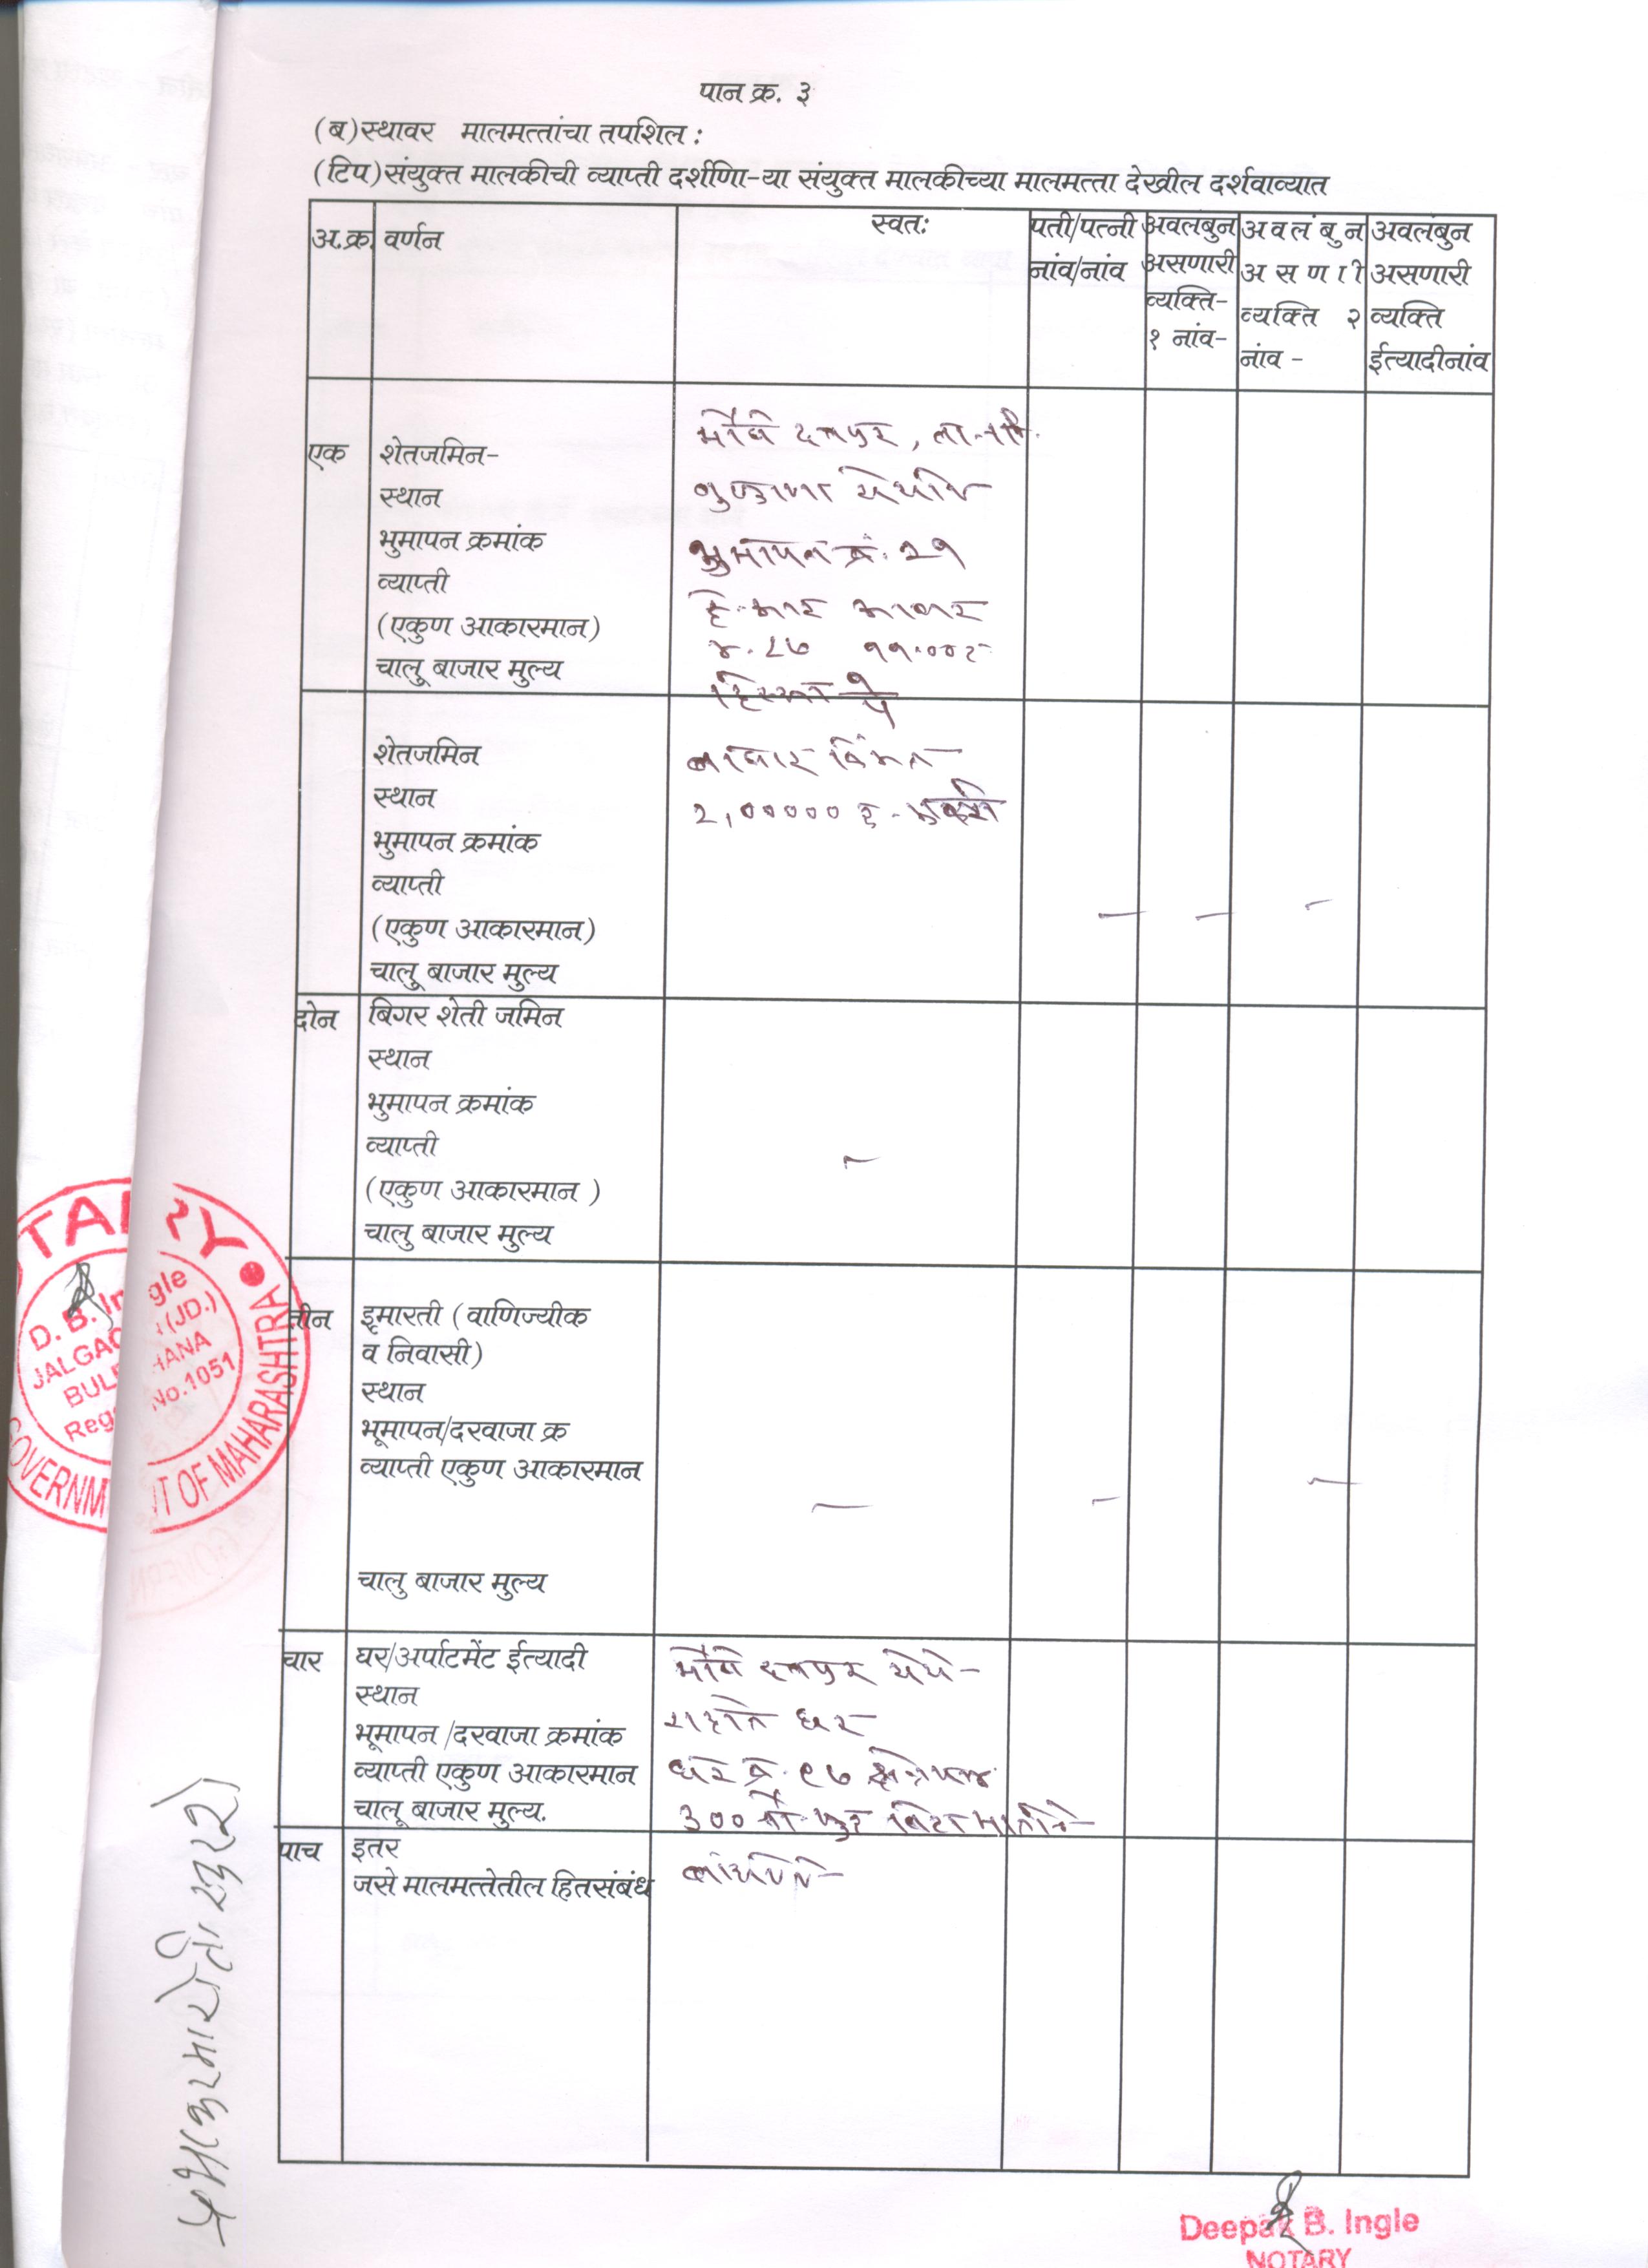 पान क्र. ३
(ब)स्थावर मालमत्तांचा तपशिल :
(टिप)संयुक्त मालकीची व्याप्ती दर्शीणा-या संयुक्त मालकीच्या मालमत्ता देखील दर्शवाव्यात
अ.क्र. वर्णन स्वतः पती/पत्नी नांव/नांव अवलंबुन असणारी व्यक्ति-१ नांव- अवलंबुन असणारी व्यक्ति २ नांव - अवलंबुन असणारी व्यक्ति ईत्यादीनांव
एक शेतजमिन-
स्थान
भुमापन क्रमांक भुमापन क्रं. २१
व्याप्ती हे. आर आकार
(एकुण आकारमान) ४.८७
चालू बाजार मुल्य हिस्सा
शेतजमिन बाजार किंमत
स्थान २,००००० रु.
भुमापन क्रमांक
व्याप्ती
(एकुण आकारमान)
चालू बाजार मुल्य
दोन बिगर शेती जमिन
स्थान
भुमापन क्रमांक
व्याप्ती
(एकुण आकारमान )
चालु बाजार मुल्य
तीन इमारती (वाणिज्यीक
व निवासी)
स्थान
भूमापन/दरवाजा क्र
व्याप्ती एकुण आकारमान
चालु बाजार मुल्य
चार घर/अर्पाटमेंट ईत्यादी मौजे येथे
स्थान राहाते घर
भूमापन /दरवाजा क्रमांक
व्याप्ती एकुण आकारमान घर क्र. ९७ क्षेत्रफळ
चालू बाजार मुल्य. ३०० चौ. फुट विटा मातीचे
पाच इतर बांधणीचे
जसे मालमत्तेतील हितसंबंध
NOTARY
D. B. Ingle
JALGAON (JD.)
BULDHANA
Reg. No.1051
GOVERNMENT OF MAHARASHTRA
Deepak B. Ingle
NOTARY